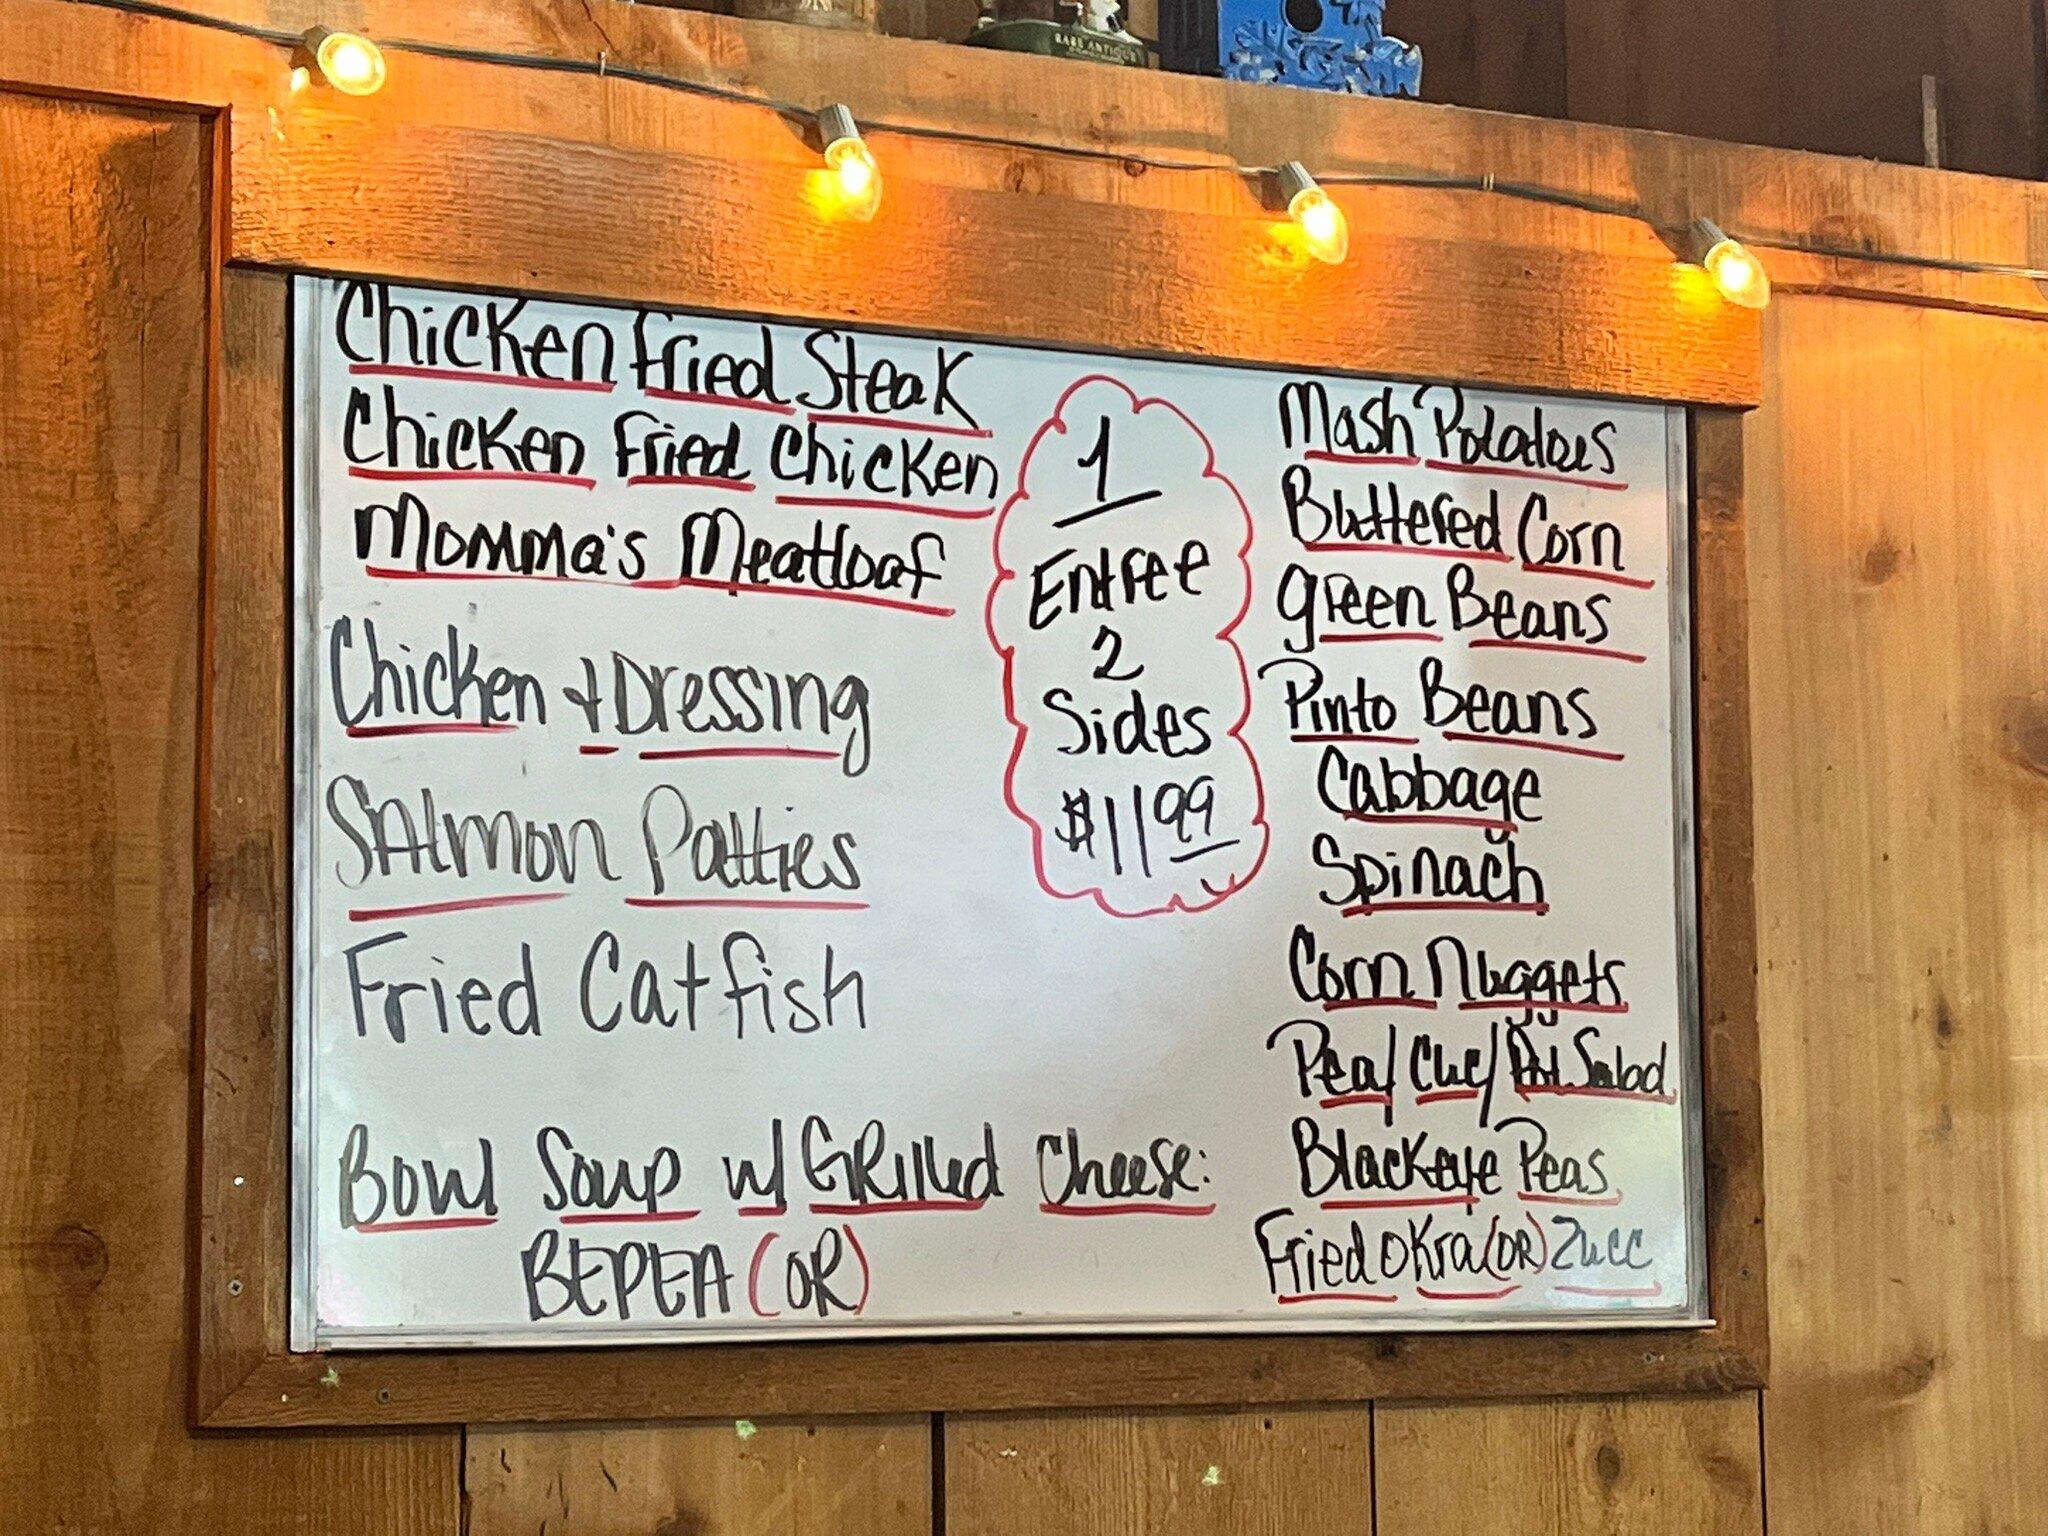 RARE ANTIQUE
Chicken Fried Steak
Chicken Fried Chicken
Momma's Meatloaf
Chicken + Dressing
Salmon Patties
Fried Catfish
Bowl Soup w/ Grilled Cheese:
BEPEA (OR)
1
Entree
2
Sides
$11 99
Mash Potatoes
Buttered Corn
Green Beans
Pinto Beans
Cabbage
Spinach
Corn Nuggets
Pea/Cuc/Pot Salad
Blackeye Peas
Fried Okra (OR) Zucc